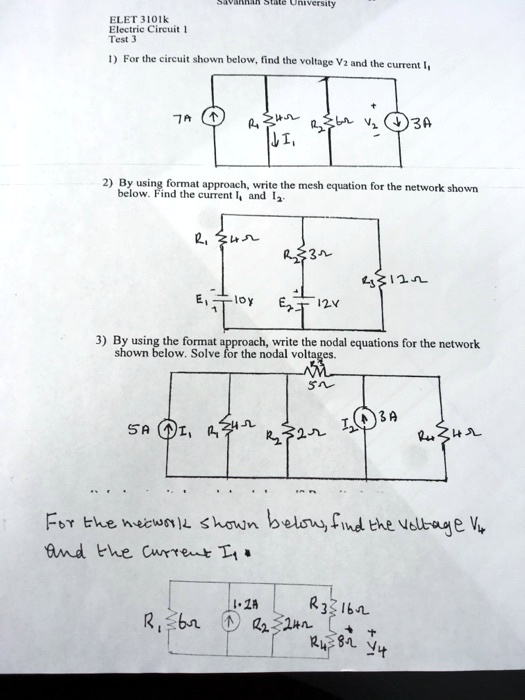 Savannah State University
ELET 3101k
Electric Circuit 1
Test 3
1) For the circuit shown below, find the voltage V2 and the current I1
7A R1 4Ω R2 6Ω + V2 - 3A
↓I1
2) By using format approach, write the mesh equation for the network shown
below. Find the current I1 and I2.
R1 4Ω
R2 3Ω
R3 12Ω
E1 - 10V + E2 + 12V -
3) By using the format approach, write the nodal equations for the network
shown below. Solve for the nodal voltages.
R3
5Ω
5A I1 R1 4Ω R2 2Ω I2 3A R4 4Ω
For the network shown below, find the voltage V4
and the current I1.
1.2A R3 16Ω
R1 6Ω R2 24Ω
R4 8Ω + V4 -